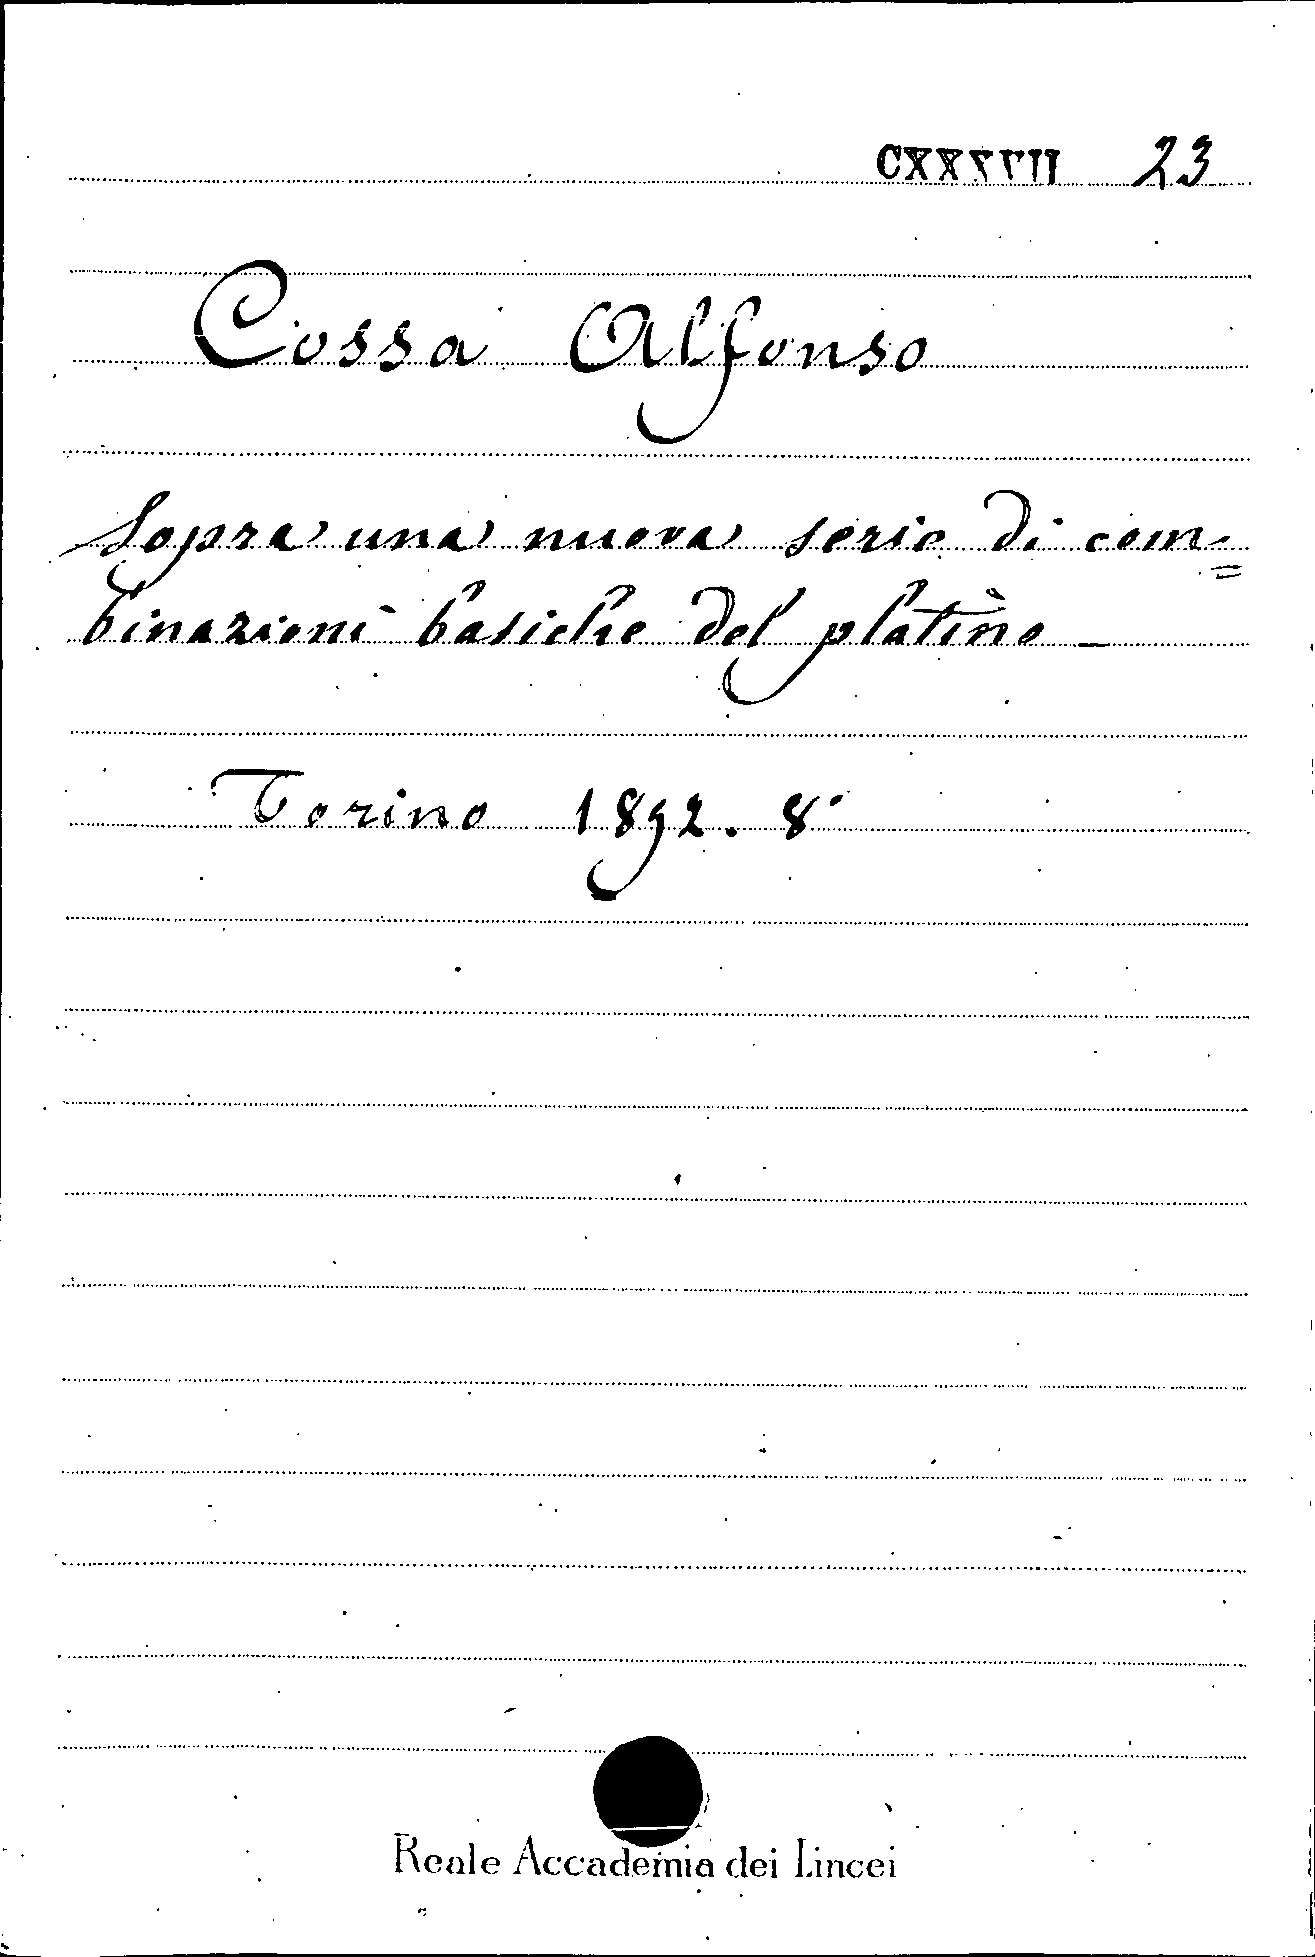 23
Cossa Alfonso
Sopra una nuova serie di com=
binazioni basiche del platino —
Torino 1892. 8°
Reale Accademia dei Lincei